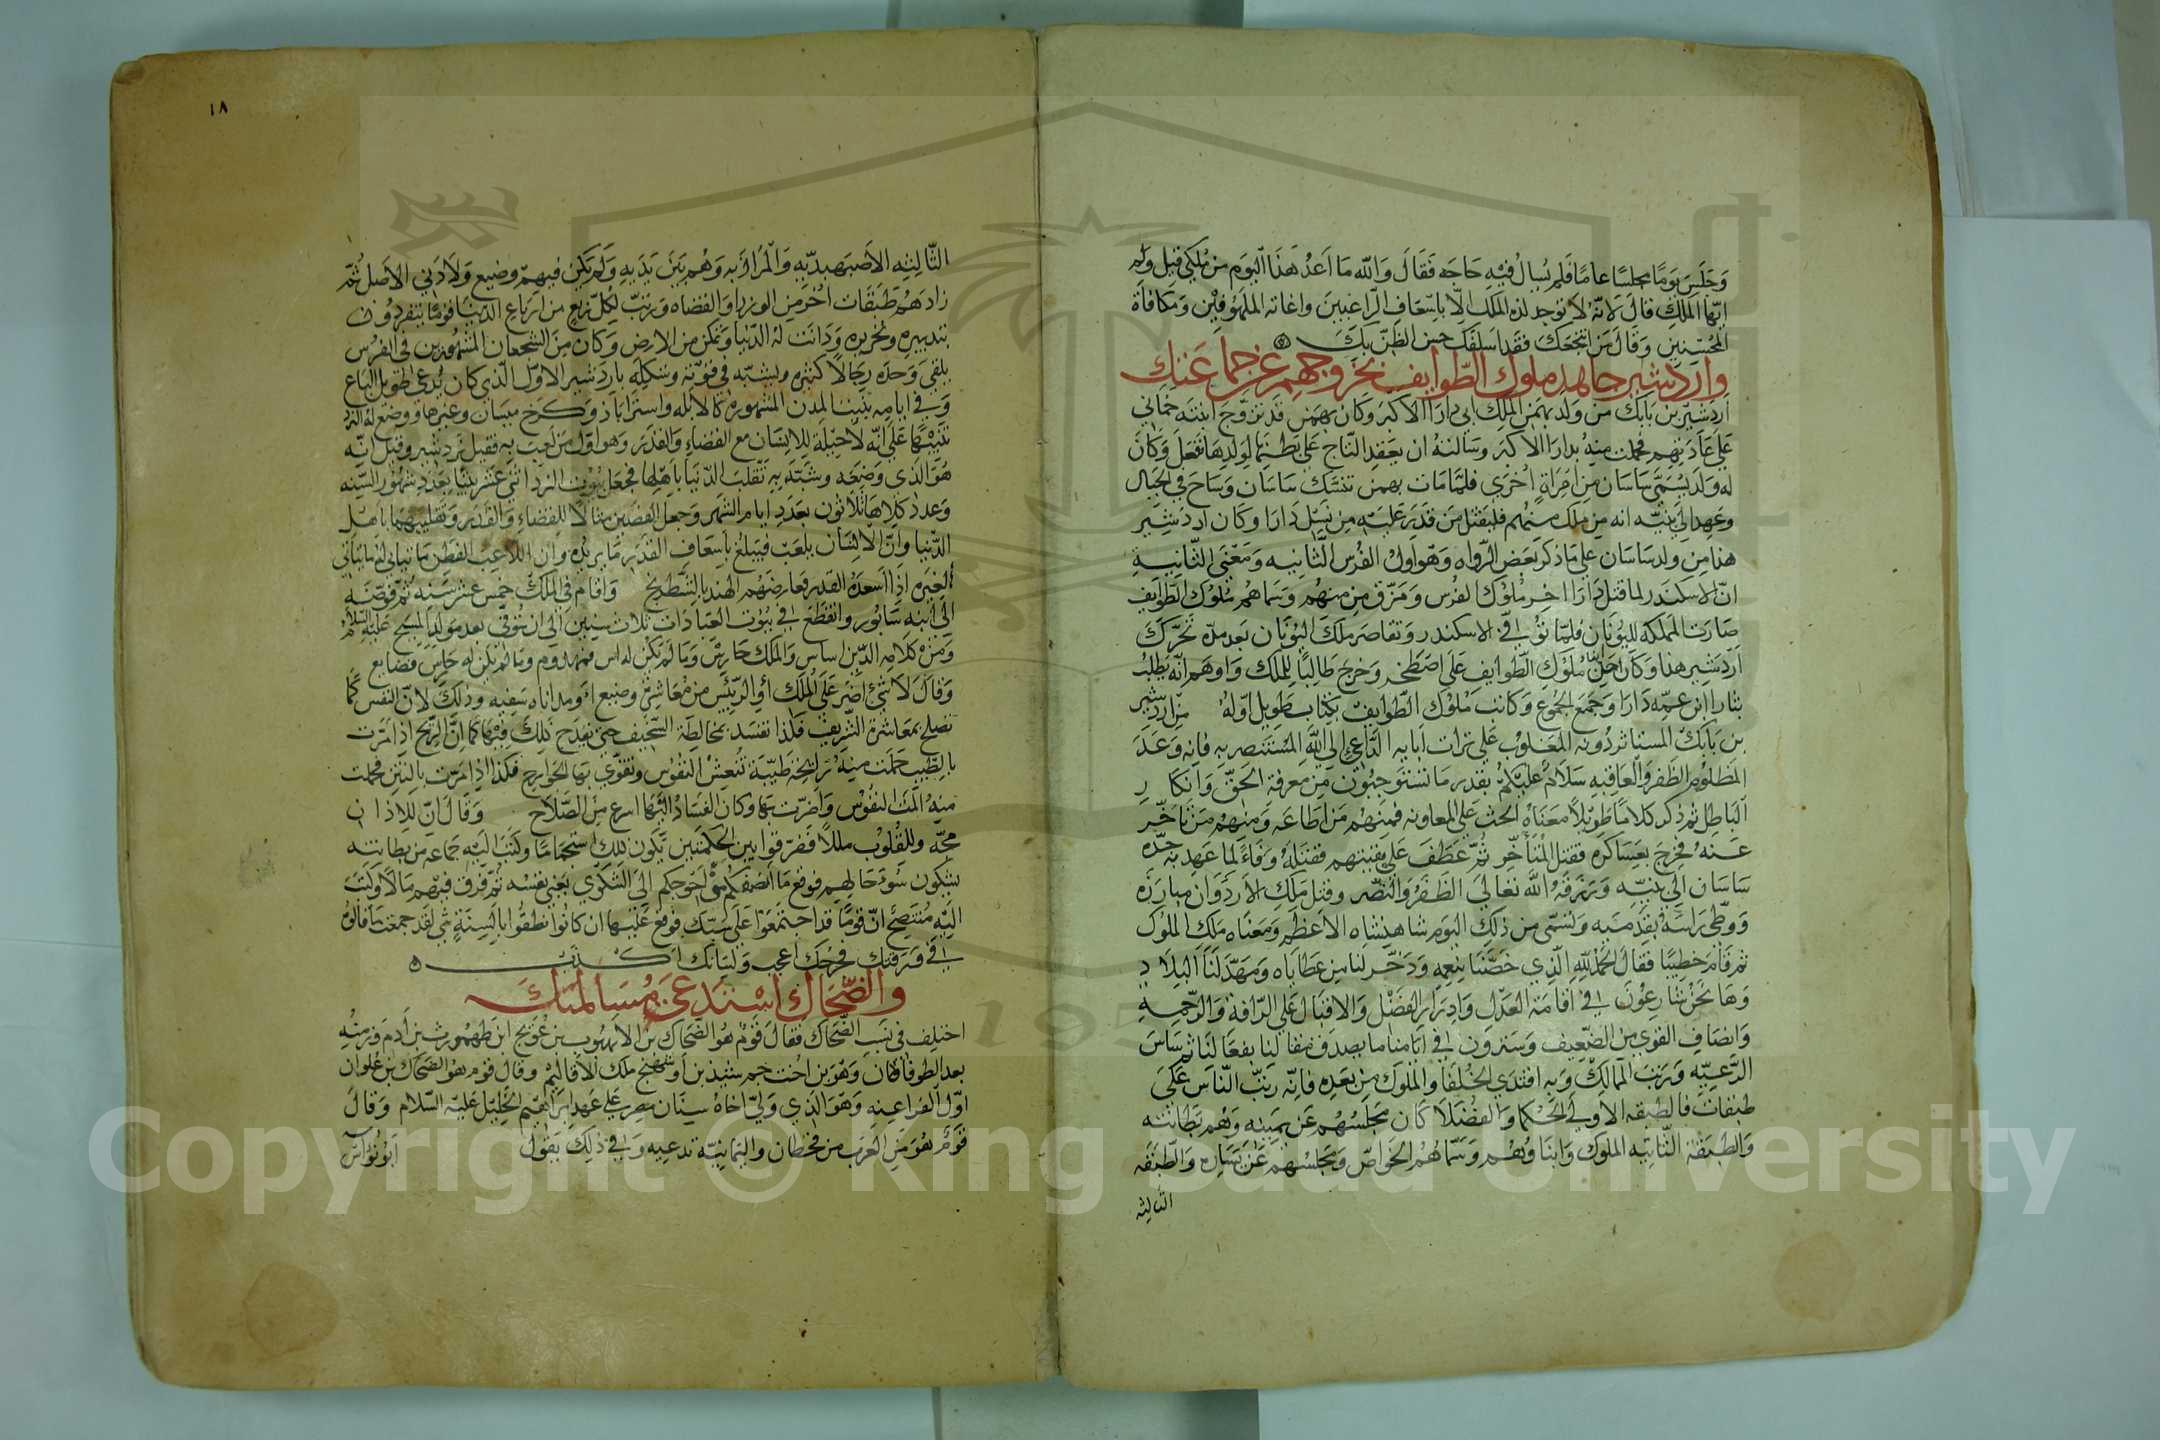 وَجَلَسَ يَومًا مجلسًا عامًا فلم يُسال فيه حاجه فقال والله ما اعد هذا اليوم من ملكي قيل ولم
ايها الملك قال لانه لا توجد لذه الملك الا باسعاف الراغبين واغاثه الملهوفين ومكافاة
المحسنين وقال من انتجعك فقد اسلفك حسن الظن بك
وأردشير جاهد ملوك الطوايف بخروجهم عن جماعتك
اردشير بن بابك من ولد بهمن الملك ابي دارا الاكبر وكان بهمن قد تزوج ابنته خماني
على عادتهم فحملت منه بدارا الاكبر وسالته ان يعقد التاج على بطنها لولدها ففعل وكان
له ولد يسمى ساسان من امراة اخرى فلما مات بهمن تنسك ساسان وساح في الجبال
وعهد الى بنيه انه من ملك منهم فليقتل من قدر عليه من نسل دارا وكان اردشير
هذا من ولد ساسان على ما ذكر بعض الرواه وهو اول الفرس الثانيه ومعنى الثانية
ان الاسكندر لما قتل دارا اخر ملوك الفرس ومزق من منهم وسماهم ملوك الطوايف
صارت المملكه لليونان فلما توفي الاسكندر وتقاصر ملك اليونان بعد مدة تحرك
اردشير هذا وكان احد ملوك الطوايف على اصطخر وخرج طالبًا للملك واوهم انه يطلب
بثار ابن عمه دارا وجمع الجموع وكاتب ملوك الطوايف بكتاب طويل اوله من اردشير
بن بابك المستاثر دونه المغلوب على تراث ابايه الداعي الى الله المستنصر به فانه وعد
المظلوم الظفر والعاقبه سلام عليكم بقدر ما تستوجبون من معرفة الحق وانكار
الباطل ثم ذكر كلاما طويلا معناه الحث على المعاونه فمنهم من اطاعه ومنهم من تاخر
عنه فخرج بعساكره فقتل المتاخر ثم عطف على بقيتهم فقتله وفاءً لما عهد به جده
ساسان الى بنيه ورزقه الله تعالى الظفر والنصر وقتل ملك الاردوان مبارزه
ووطى براسه بقدميه وتسمى من ذلك اليوم شاهنشاه الاعظم ومعناه ملك الملوك
ثم قام خطيبًا فقال الحمد لله الذي خصنا بنعمه وذخر لنا من عطاياه ومهد لنا البلاد
وها نحن شارعون في اقامة العدل وادرار الفضل والاقبال على الرافة والرحمة
وانصاف القوي من الضعيف وسترون في ايامنا ما يصدق مقالنا بفعالنا ثم ساس
الرعيه ورتب الممالك وبه اقتدى الخلفا والملوك من بعده فانه رتب الناس على
طبقات فالطبقه الاولى الحكما والفضلا كان مجلسهم عن يمينه وهم بطانته
والطبقة الثانيه الملوك وابناوهم وسماهم الخواص ومجلسهم عن يساره والطبقه
الثالثه
١٨
الثالثه الاصبهبديه والمرازبه وهم بين يديه ولم يكن فيهم وضيع ولا دني الاصل ثم
زادهم طبقات اخر من الوزرا والقضاه ورتب لكل ربع من ارباع الدنيا قومًا ينفردون
بتدبيره وتحريره ودانت له الدنيا وتمكن من الارض وكان من الشجعان المشهورين في الفرس
يلقى وحده رجالا كثيره ويشبه في قوته وشكله باردشير الاول الذي كان يدعى طويل الباع
وفي ايامه بنيت المدن المشهوره كالابله واستراباذ وكرخ ميسان وغيرها ووضع له النرد
تنبيهًا على انه لا حيلة للانسان مع القضاء والقدر وهو اول من لعب به فقيل نردشير وقيل انه
هو الذي وضعه وشبه به تقلب الدنيا باهلها فجعل بيوت النرد اثني عشر بيتًا بعدد شهور السنه
وعدد كلابها ثلاثون بعدد ايام الشهر وجعل الفصين مثالا للقضاء والقدر وتقليبهما باهل
الدنيا وان الانسان يلعب فيبلغ باسعاف القدر ما يريده وان اللاعب الفطن ما يتاتى له ما يتاتى
لغيره اذا اسعده القدر فعارضهم الهند بالشطرنج واقام في الملك خمس عشر سنه ثم فوضه
الى ابنه سابور وانقطع في بيوت العبادات ثلاث سنين الى ان توفي بعد مولد المسيح عليه السلام
ومن كلامه الدين اساس والملك حارس وما لم يكن له اس فمهدوم وما لم يكن له حارس فضايع
وقال لا شيء اضر على الملك او الريس من معاشرة وضيع او مداناه سفيه وذلك لان النفس كما
تصلح بمعاشرة الشريف فكذا تفسد بمخالطة السخيف حتى يقدح ذلك فيها كما ان الريح اذا مرت
بالطيب حملت منه رايحة طيبة تنعش النفوس وتقوى بها الجوارح فكذا اذا مرت بالنتن فحملت
منه المت النفوس واضرت بها وكان الفساد اليها اسرع من الصلاح وقال ان للاذان
مجه وللقلوب مللا ففرقوا بين الحكمتين يكون ذلك استجمامًا وكتب اليه جماعه من بطانته
يشكون سوء حالهم فوقع ما انصفكم من احوجكم الى الشكوى يعني نفسه ثم فرق فيهم مالا وكتب
اليه متنصح ان قومًا قد اجتمعوا على سبك فوقع عليها ان كانوا نطقوا بالسنةٍ شتى لقد جمعت ما قالوه
في ورقتك فجرحك اعجب ولسانك اكذب
والضحاك استدعى مسالمتك
اختلف في نسب الضحاك فقال قوم هو الضحاك بن الاهيوب بن عويج ابن طهمورث بن ادم وزمنه
بعد الطوفان وهو بن اخت جمشيذ بن اوشهنج ملك الاقاليم وقال قوم هو الضحاك بن علوان
اول الفراعنه وهو الذي ولى اخاه سنان مصر على عهد ابراهيم الخليل عليه السلام وقال
قوم هو من العرب من قحطان واليمانيه تدعيه وفي ذلك يقول ابو نواس
Copyright © King Saud University